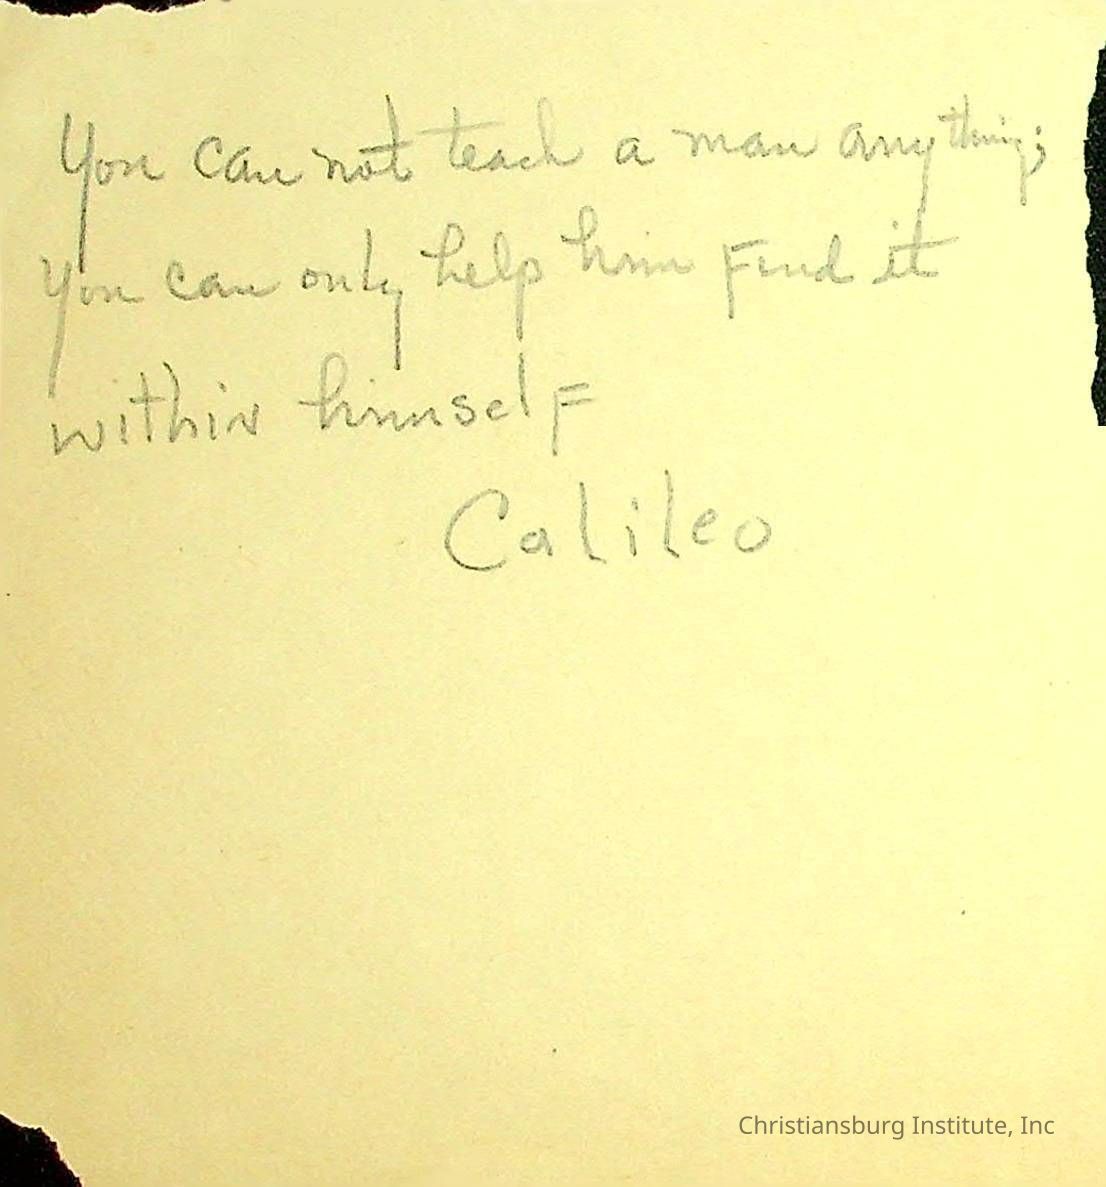 You can not teach a man anything;
you can only help him Find it
within himselF
Calileo
Christiansburg Institute, Inc